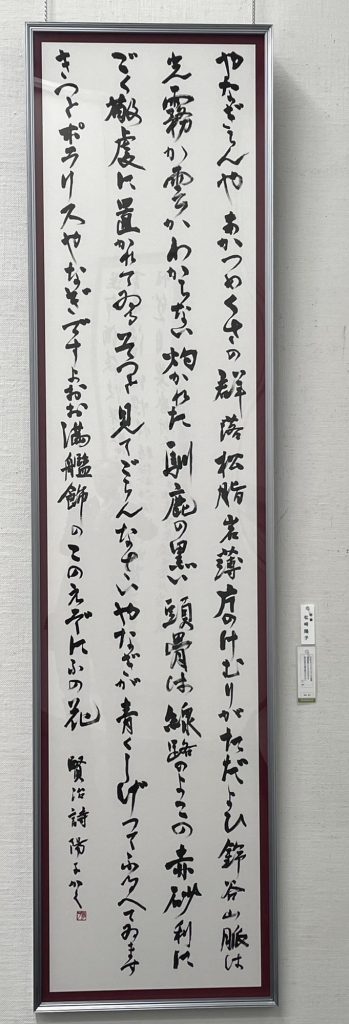 やなぎらんやあかつめくさの群落松脂岩薄片のけむりがただよひ鈴谷山脈は
光霧か雲かわからない灼かれた馴鹿の黒い頭骨は線路のよこの赤砂利に
ごく敬虔に置かれてゐるそつと見てごらんなさいやなぎが青くしげつてふるへてゐます
きつとポラリスやなぎですよおお満艦飾のこのえぞにふの花
賢治詩 陽子かく